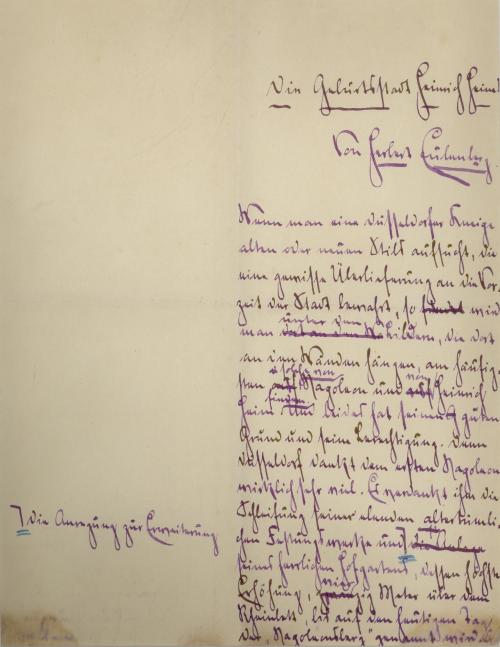 Die Geburtsstadt Heinrich Heines
Von Herbert Eulenberg.
Wenn man eine Düsseldorfer Kneipe
alten oder neuen Stils aufsucht, die
eine gewisse Überlieferung an die Vor-
zeit der Stadt bewahrt, so findet wird
unter den
man Bildern, die dort
an den Wänden hängen, am häufig-
solche von von
sten auf Napoleon und auf Heinrich
finden
Heine. Und beides hat seinen guten
Grund und seine Berechtigung. Denn
Düsseldorf dankt dem ersten Napoleon
wirklich sehr viel. Es verdankt ihm die
Schleifung seiner elenden altertümli-
chen Festungswerke und die Anlage
die Anregung zur Erweiterung
seines herrlichen Hofgartens, dessen höchste
Erhöhung, vierzig Meter über dem
Rheinbett, bis auf den heutigen Tag
der „Napoleonsberg“ genannt wird.